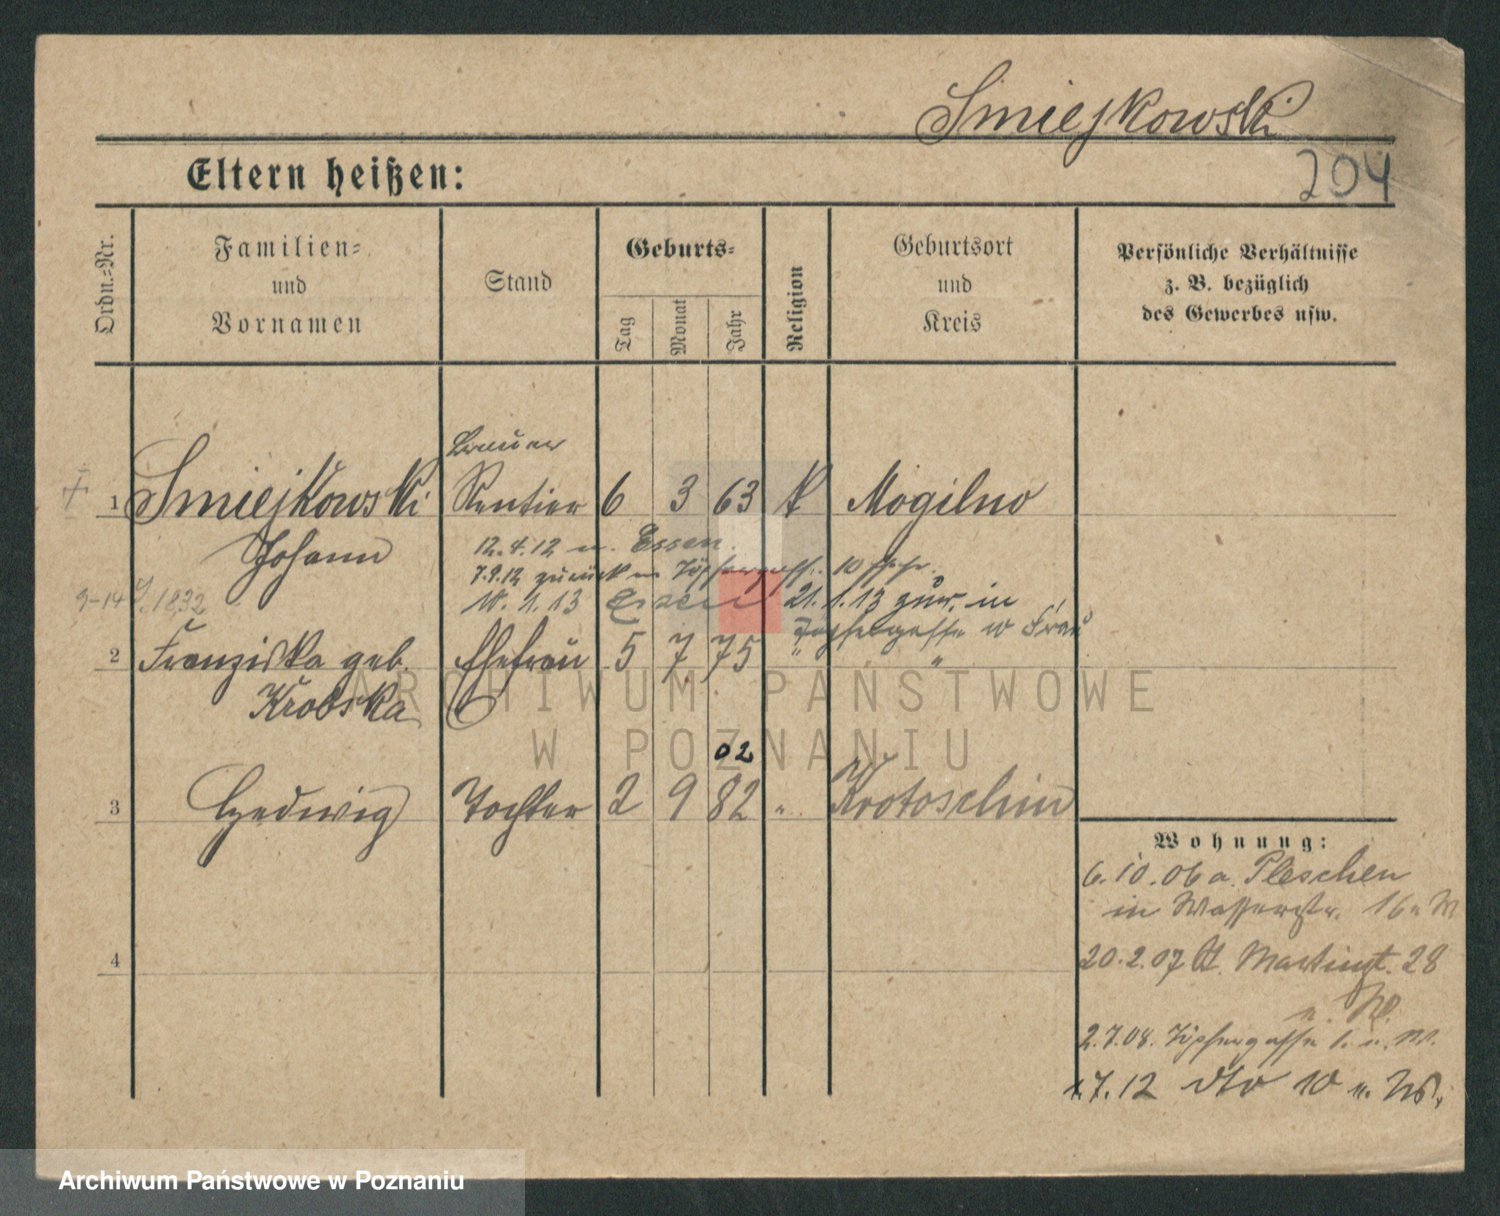 Smiejkowski
204
Eltern heißen:
Ordn.-Nr.
Familien-
und
Vornamen
Stand
Geburts-
Tag
Monat
Jahr
Religion
Geburtsort
und
Kreis
Persönliche Verhältnisse
z. B. bezüglich
des Gewerbes usw.
1 Smiejkowski Rentier 6 3 63 k Mogilno
Johann
12.4.12 n. Essen.
7.9.12 zurück n. Töpfergasse 10
18.1.13 Essen 21.1.13 zur. in
Töpfergasse w Frau
2 Franziska geb. Ehefrau 5 7 75 " "
Krobska
02
3 Hedwig Tochter 2 9 82 " Krotoschin
4
Wohnung:
6.10.06 a. Pleschen
in Wasserstr. 16
20.2.07 Martinst. 28
2.7.08. Töpfergasse
1.7.12 dto 10 n. W.
ARCHIWUM PAŃSTWOWE
W POZNANIU
Archiwum Państwowe w Poznaniu